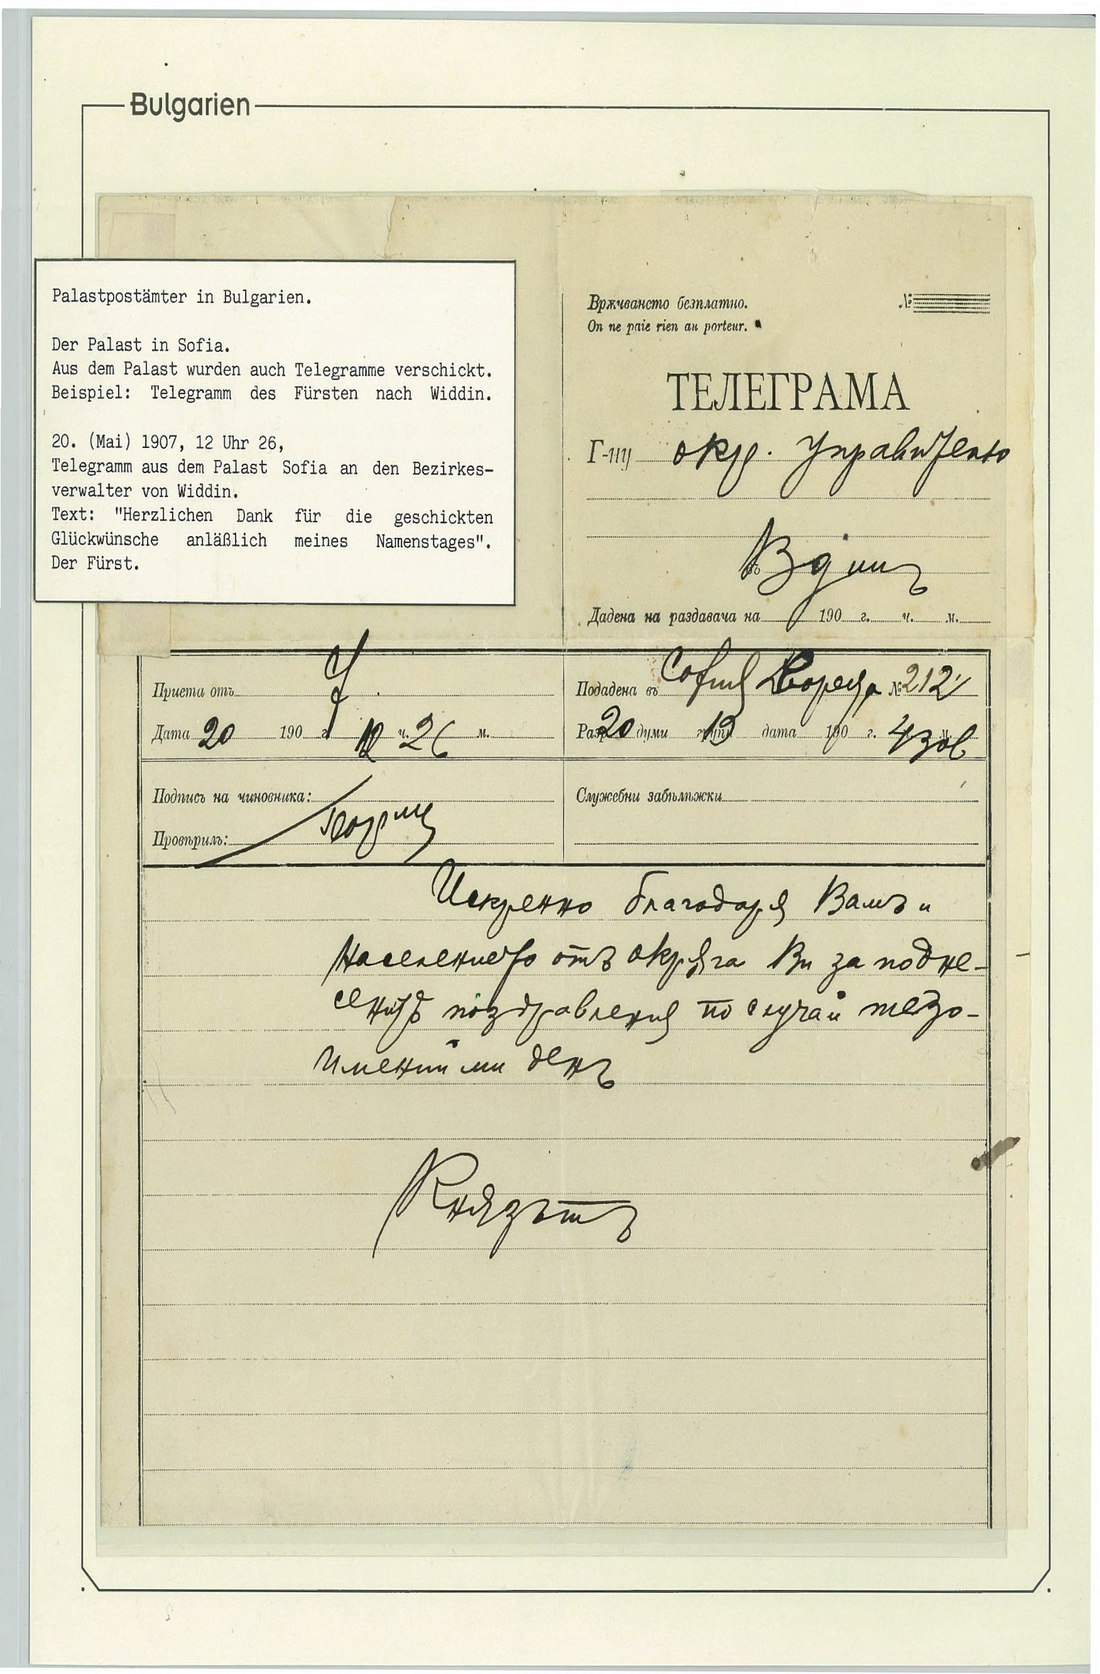 Bulgarien
Palastpostämter in Bulgarien.
Der Palast in Sofia.
Aus dem Palast wurden auch Telegramme verschickt.
Beispiel: Telegramm des Fürsten nach Widdin.
20. (Mai) 1907, 12 Uhr 26,
Telegramm aus dem Palast Sofia an den Bezirkes-
verwalter von Widdin.
Text: "Herzlichen Dank für die geschickten
Glückwünsche anläßlich meines Namenstages".
Der Fürst.
Врѫчванєто безплатно. №
On ne paie rien au porteur.
ТЕЛЕГРАМА
Г-ну окр. Управителю
Въ Видинъ
Дадена на раздавача на 190 г. ч. м.
Приета отъ
Дата 20 1907 г. 12 ч. 26 м.
Подадена въ София Дворецъ № 212
Раз. 20 думи 19 дата 190 г. ч 30 м.
Подпись на чиновника:
Провѣрилъ:
Служебни забѣлѣжки
Искренно благодаря Вамъ и
населението отъ окрѫга Ви за подне-
сенитѣ поздравления по случай тезо-
именни ми день
Князътъ